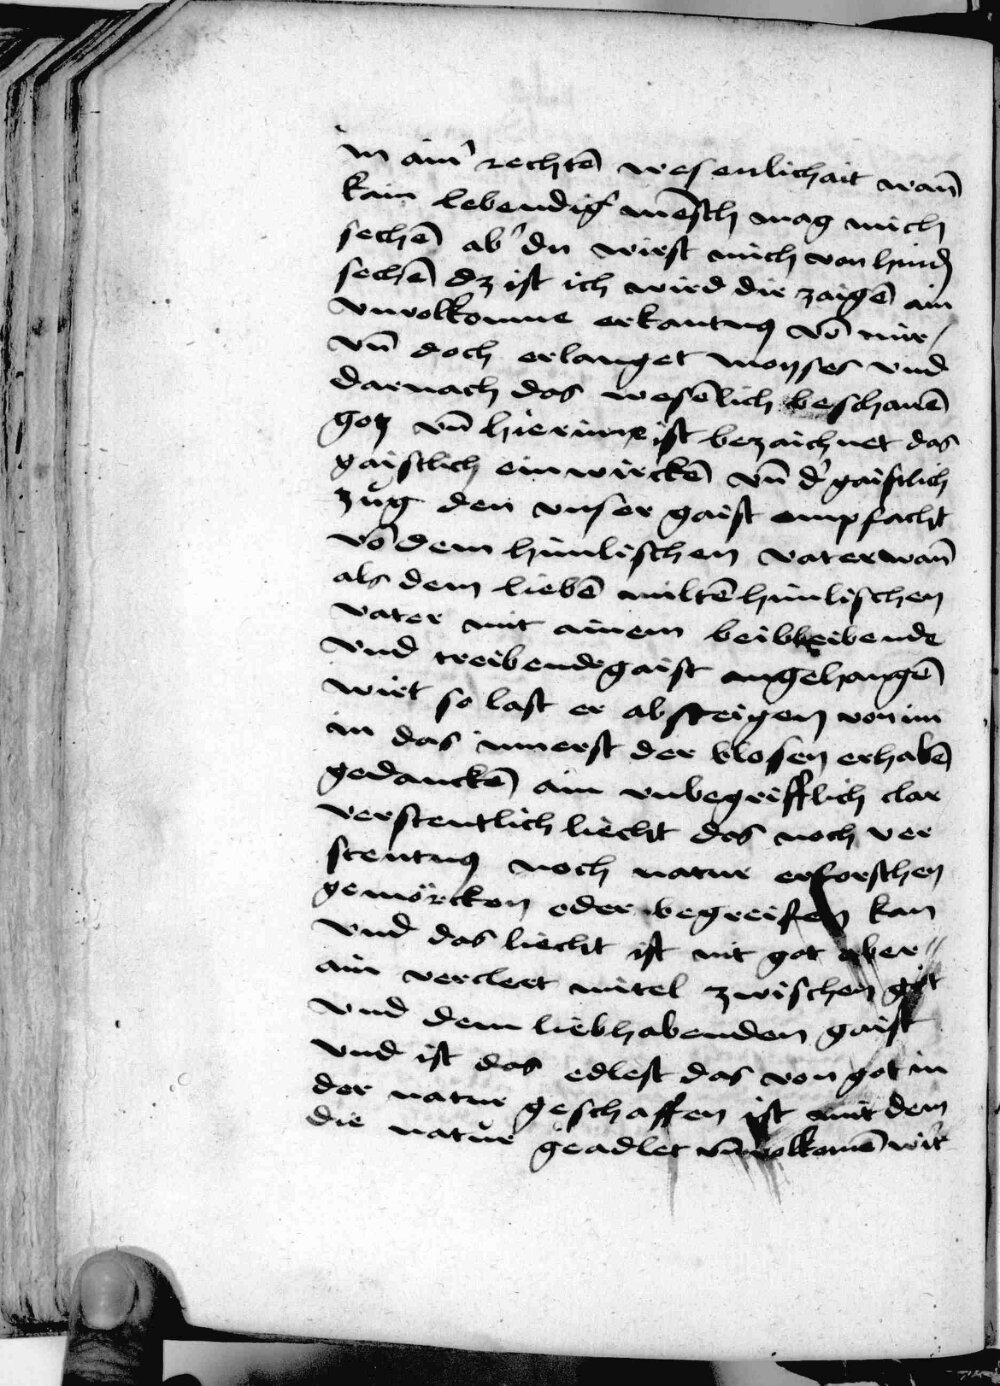 in aim̄ rechtē wesenlichait wañ
kain lebendig mēsch mag mich
sechē ab' du wirst mich von hind̄
sechē dz ist ich wird dir zaigē ain
vnuolkomne erkantnuß vō mir /
vñ doch erlanget moyses vnd
darnach das wesēlich beschauē
gotz vñ hierinne ist bezaichnet das
gaistlich einwirckē vñ d' gaistlich
zůg den vnser gaist empfacht
vō dem himlischen vater wañ
als dem liebē miltē himlischen
vater mit ainem beibleibende
vnd treibende gaist angehangē
wirt so last er absteigen von im
in das innerst der blosen erhabē
gedanckē ain vnbegrifflich clar
verstentlich liecht das noch ver
stentnuß noch natur erforschen
gemörcken oder begreiffen kan
vnd das liecht ist nit got aber //
ain vercleet mitel zwischen got
vnd dem liebhabenden gaist
vnd ist das edlest das von got in
der natur geschaffen ist mit dem
die natur geadlet vñ volkomē wirt